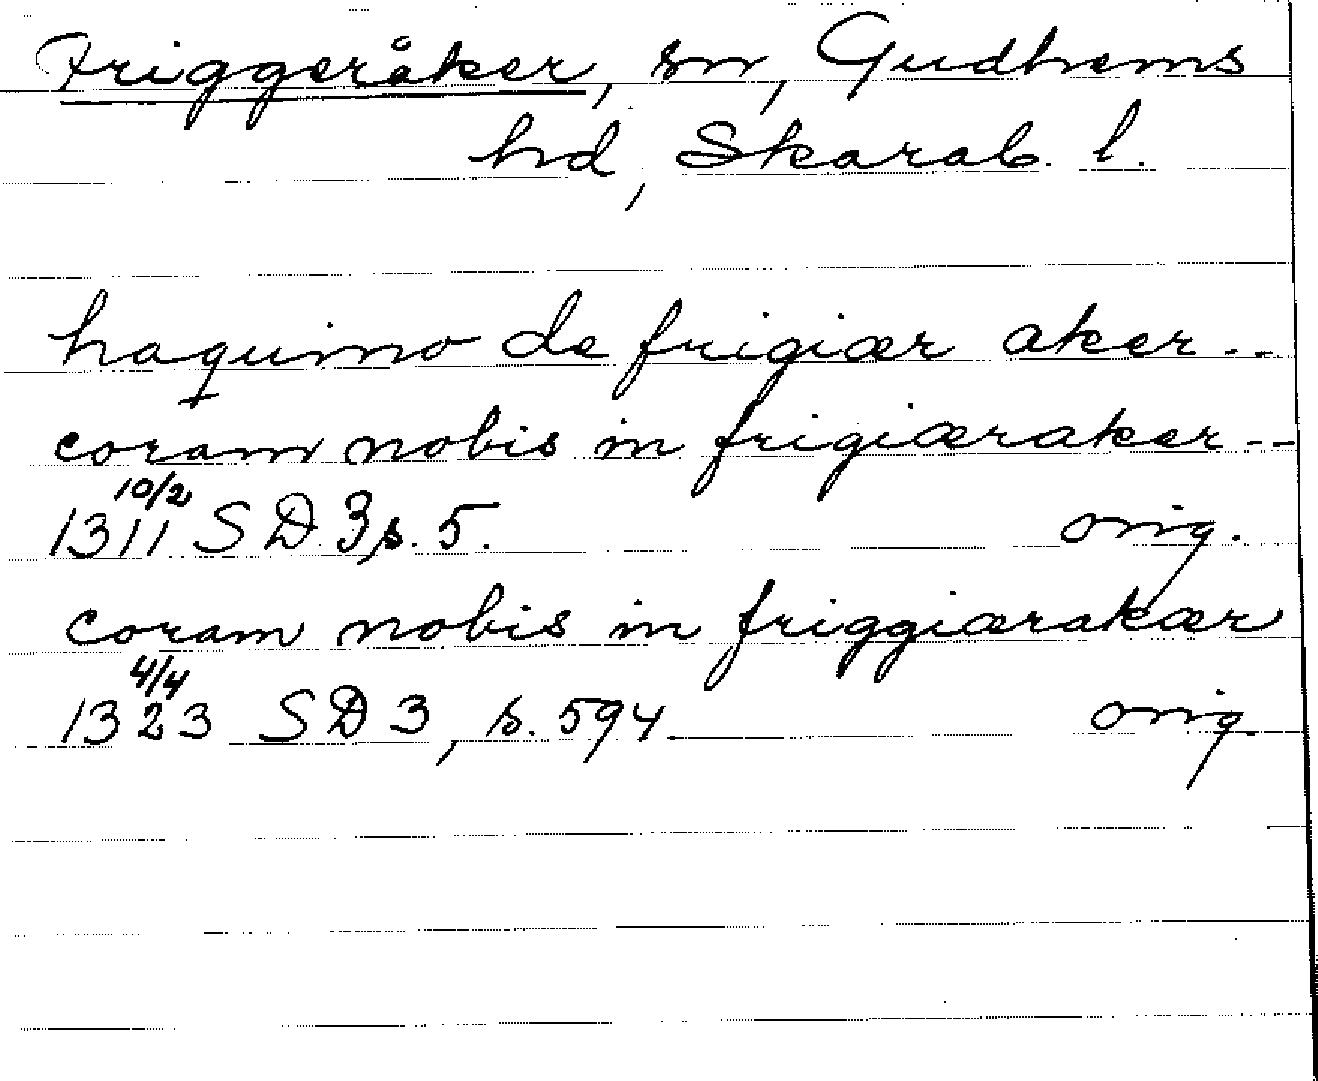 Friggeråker, sn, Gudhems
hd, Skarab. l.
haquino de frigiær aker --
coram nobis in frigiæraker --
10/2
1311 SD 3, s. 5. orig.
coram nobis in friggiærakær
4/4
1323 SD 3, s. 594 orig.